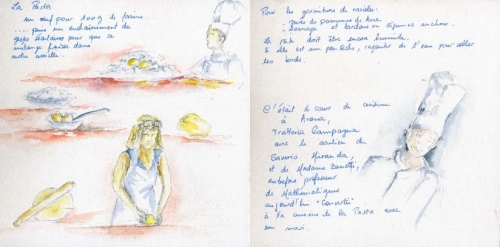 La Pasta
un oeuf pour 100g de farine.
... puis un enchaînement de
gestes
pour que ce
mélange finisse dans
notre assiette.
Pour les garnitures de ravioles:
- purée de pommes de terre
- fromage et cardons ou légumes anchois.
La pâte doit être encore humide.
Si elle est un peu sèche, rajouter de l'eau pour coller
les bords.
C'était le cours de cuisine
à Arona,
Trattoria Campagna
avec le soutien de
Saverio Miranda,
et de Madame Zanetti,
autrefois professeur
de Mathématiques
aujourd'hui "convertie"
à la cuisine de la Pasta avec
son mari.